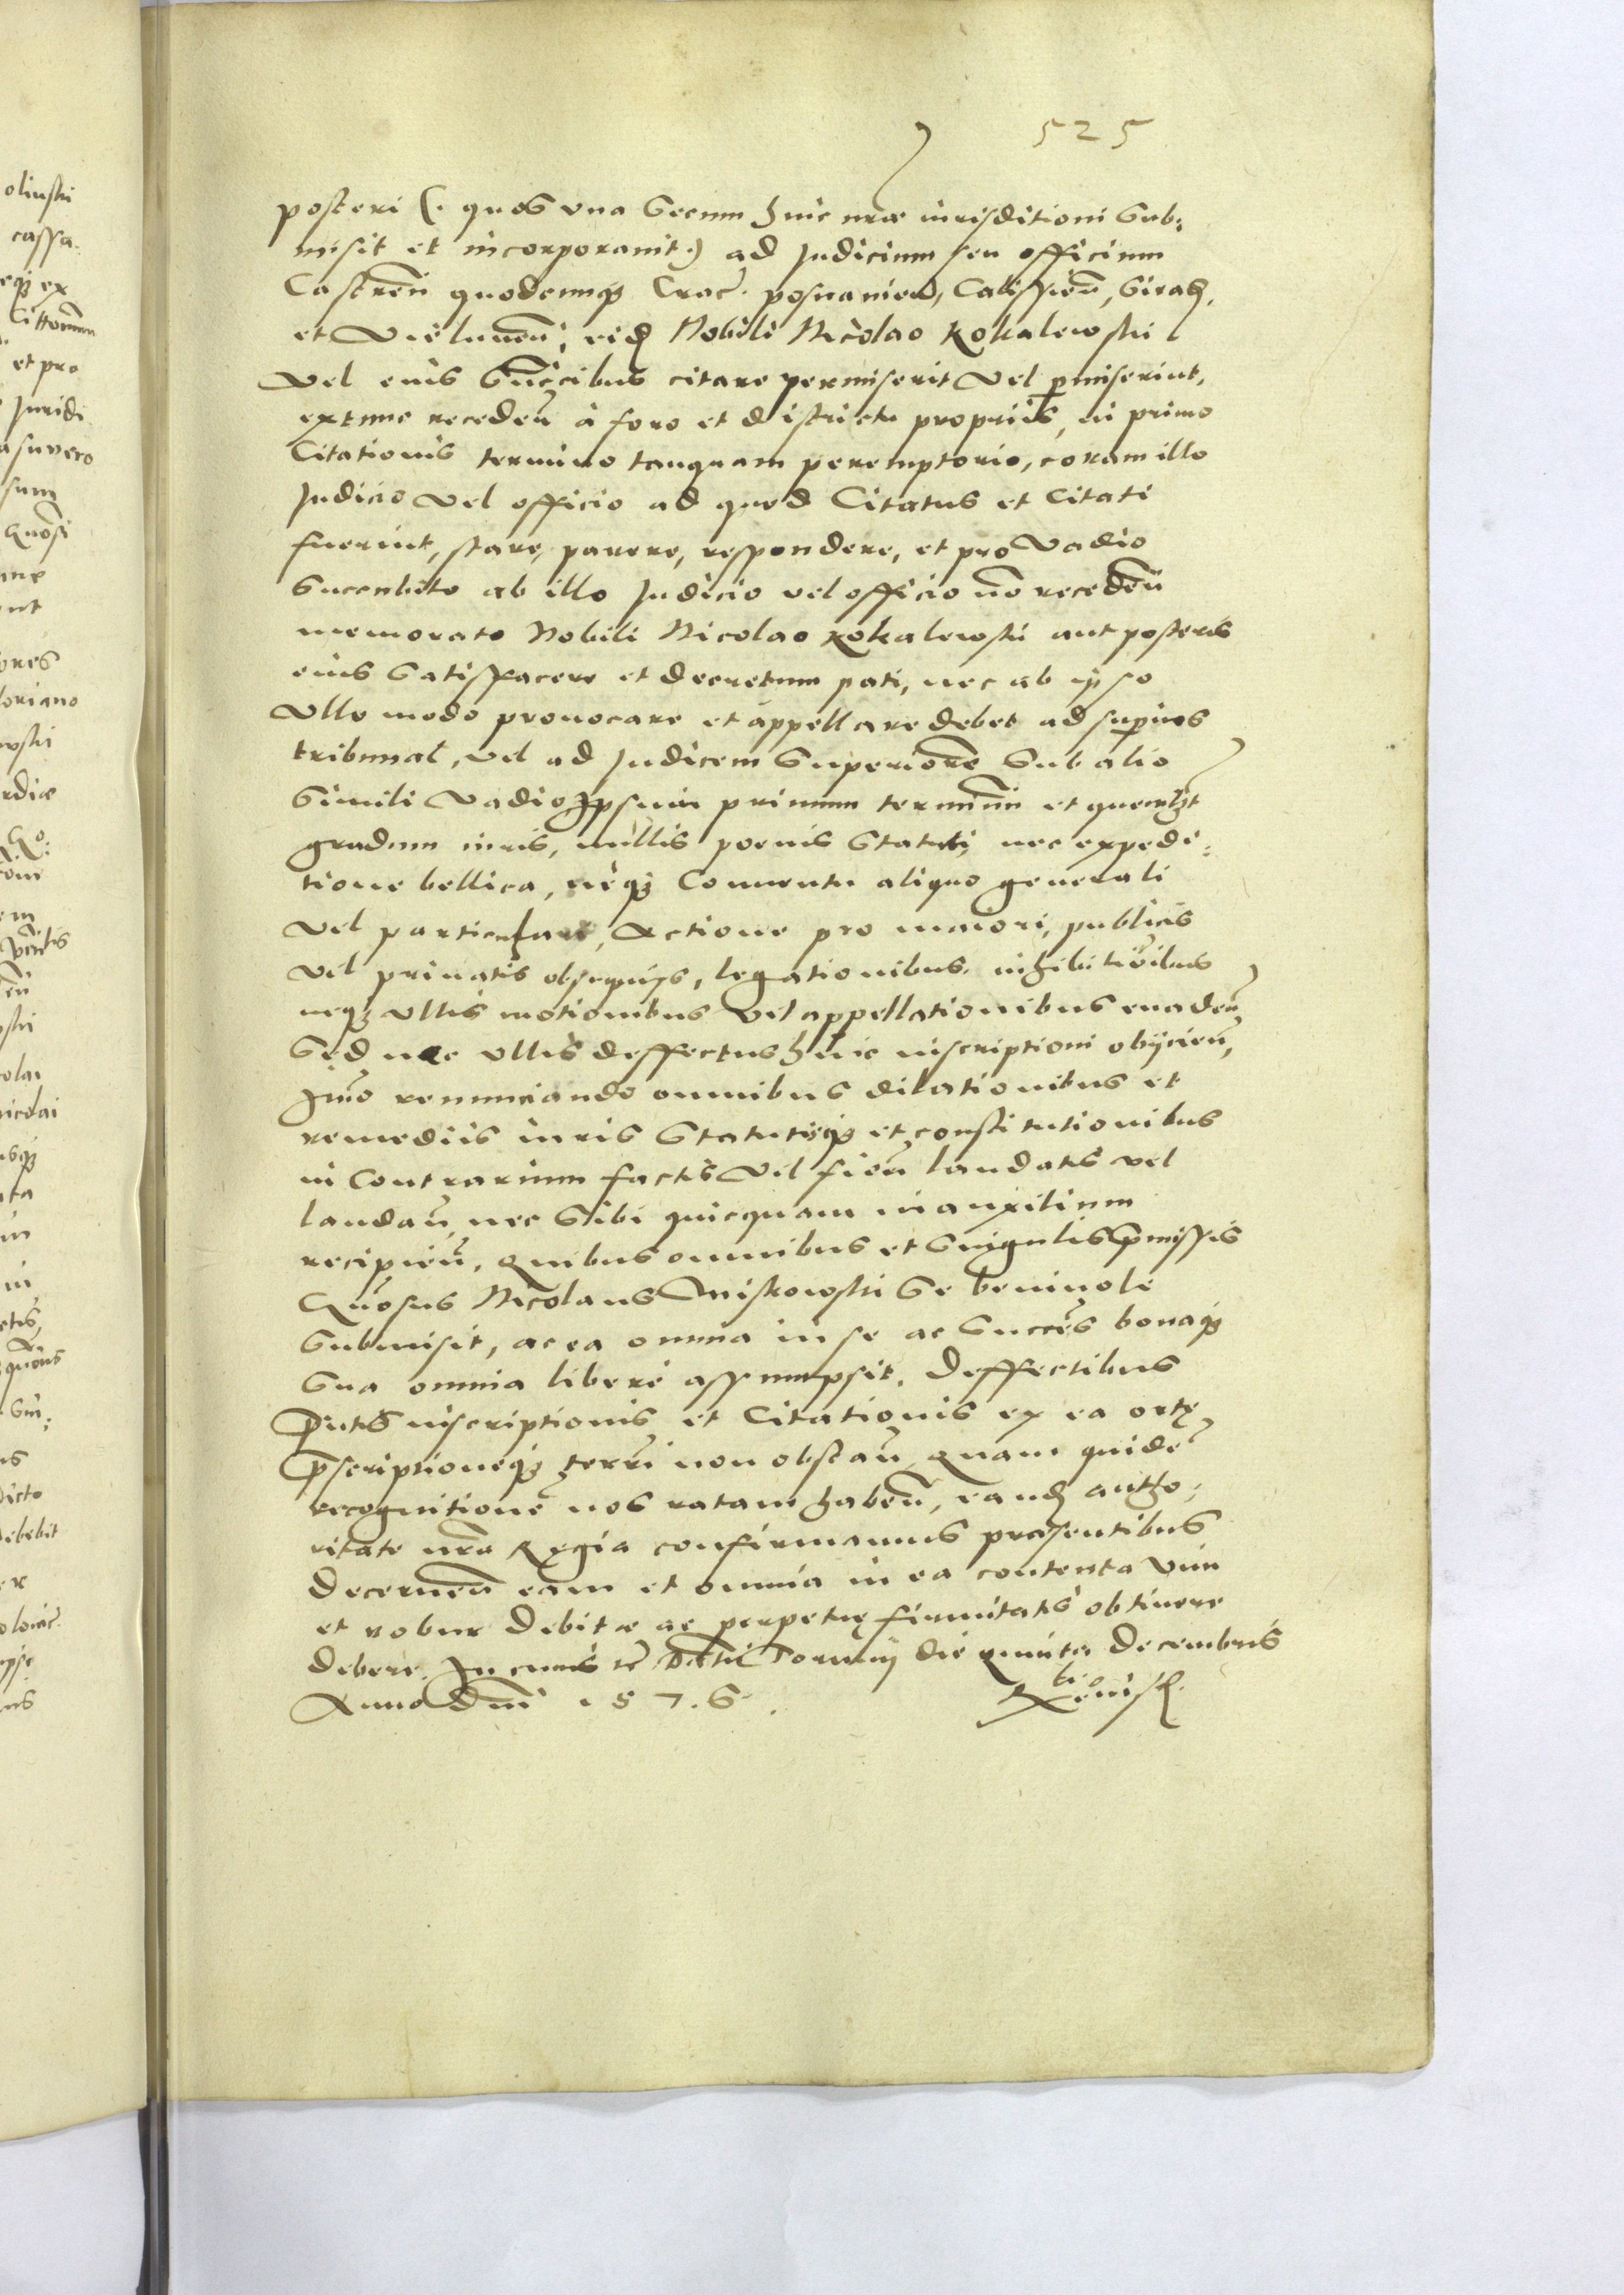 525
posteri (. quos una secum huic nræ iurisditioni sub:
misit et incorporauit .) ad Judicium seu officium
Castreñ quodcunqȝ Crac. posnanieñ, Calissieñ, Sirad,
et Vieluneñ, eid Nobili Nicolao Kokalewski
vel eius succibus citare permiserit vel pmiserint,
extunc recedeñ à foro et districtu propriis, in primo
Citationis termino tanquam peremptorio, coram illo
Judicio vel officio ad quod Citatus et Citati
fuerint, stare, parere, respondere, et pro vadio
succubito ab illo Judicio vel officio nõ recedeñ
memorato Nobili Nicolao Kokalewski aut posteris
eius satisfacere et decretum pati, nec ab ipso
ullo modo prouocare et appellare debet ad superius
tribunal, vel ad Judicem superiorẽ sub alio
simili vadio Ipsum primum terminũ et quemlȝt
gradum iuris, nullis poenis Statuti, nec expedi:
tione bellica, neqȝ Conuentu aliquo generali
vel particulari, Actione pro maiori, publicis
vel priuatis obsequijs, legationibus, inhibitiõibus
neqȝ ullis motionibus vel appellationibus euadeñ
Sed nec ullis deffectus huic inscriptioni obijcieñ,
Imo renunciando omnibus dilationibus et
remediis iuris Statutisqȝ et constitutionibus
in Contrarium factis vel fieñ laudatis vel
laudañ, nec sibi quicquam in auxilium
recipieñ, Quibus omnibus et singulis pmissis
Gñosus Nicolaus Miskowski se beniuole
submisit, ac ea omnia in se ac succes bonaqȝ
sua omnia liberè assumpsit. Deffectibus
pntis inscriptionis et Citationis ex ea ortę
pscriptioneqȝ terri non obstañ, Quam quidẽ
recognitionẽ nos ratam habeñ, eand autho:
ritate nrã Regia confirmamus præsentibus
Decerneñ eam et omnia in ea contenta vim
et robur Debitæ ac perpetuę firmitatis obtinere
debere. In cuius rẽ Dat Torunij die quinta Decembris
Anno Dni 1576.